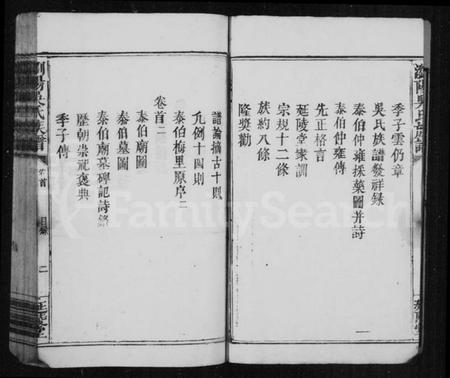 季子雲仍章
吳氏族譜發祥錄
泰伯仲雍採藥圖并詩
泰伯仲雍傳
先正格言
延陵堂家訓
宗規十二條
族約八條
隆獎勸
譜論摘古十則
凡例十四則
泰伯梅里原序二
卷首二
泰伯廟圖
泰伯墓圖
泰伯廟墓碑記詩
歷朝崇祀褒典
季子傳
瀏陽吳氏族譜
卷首
目錄
二
FamilySearch